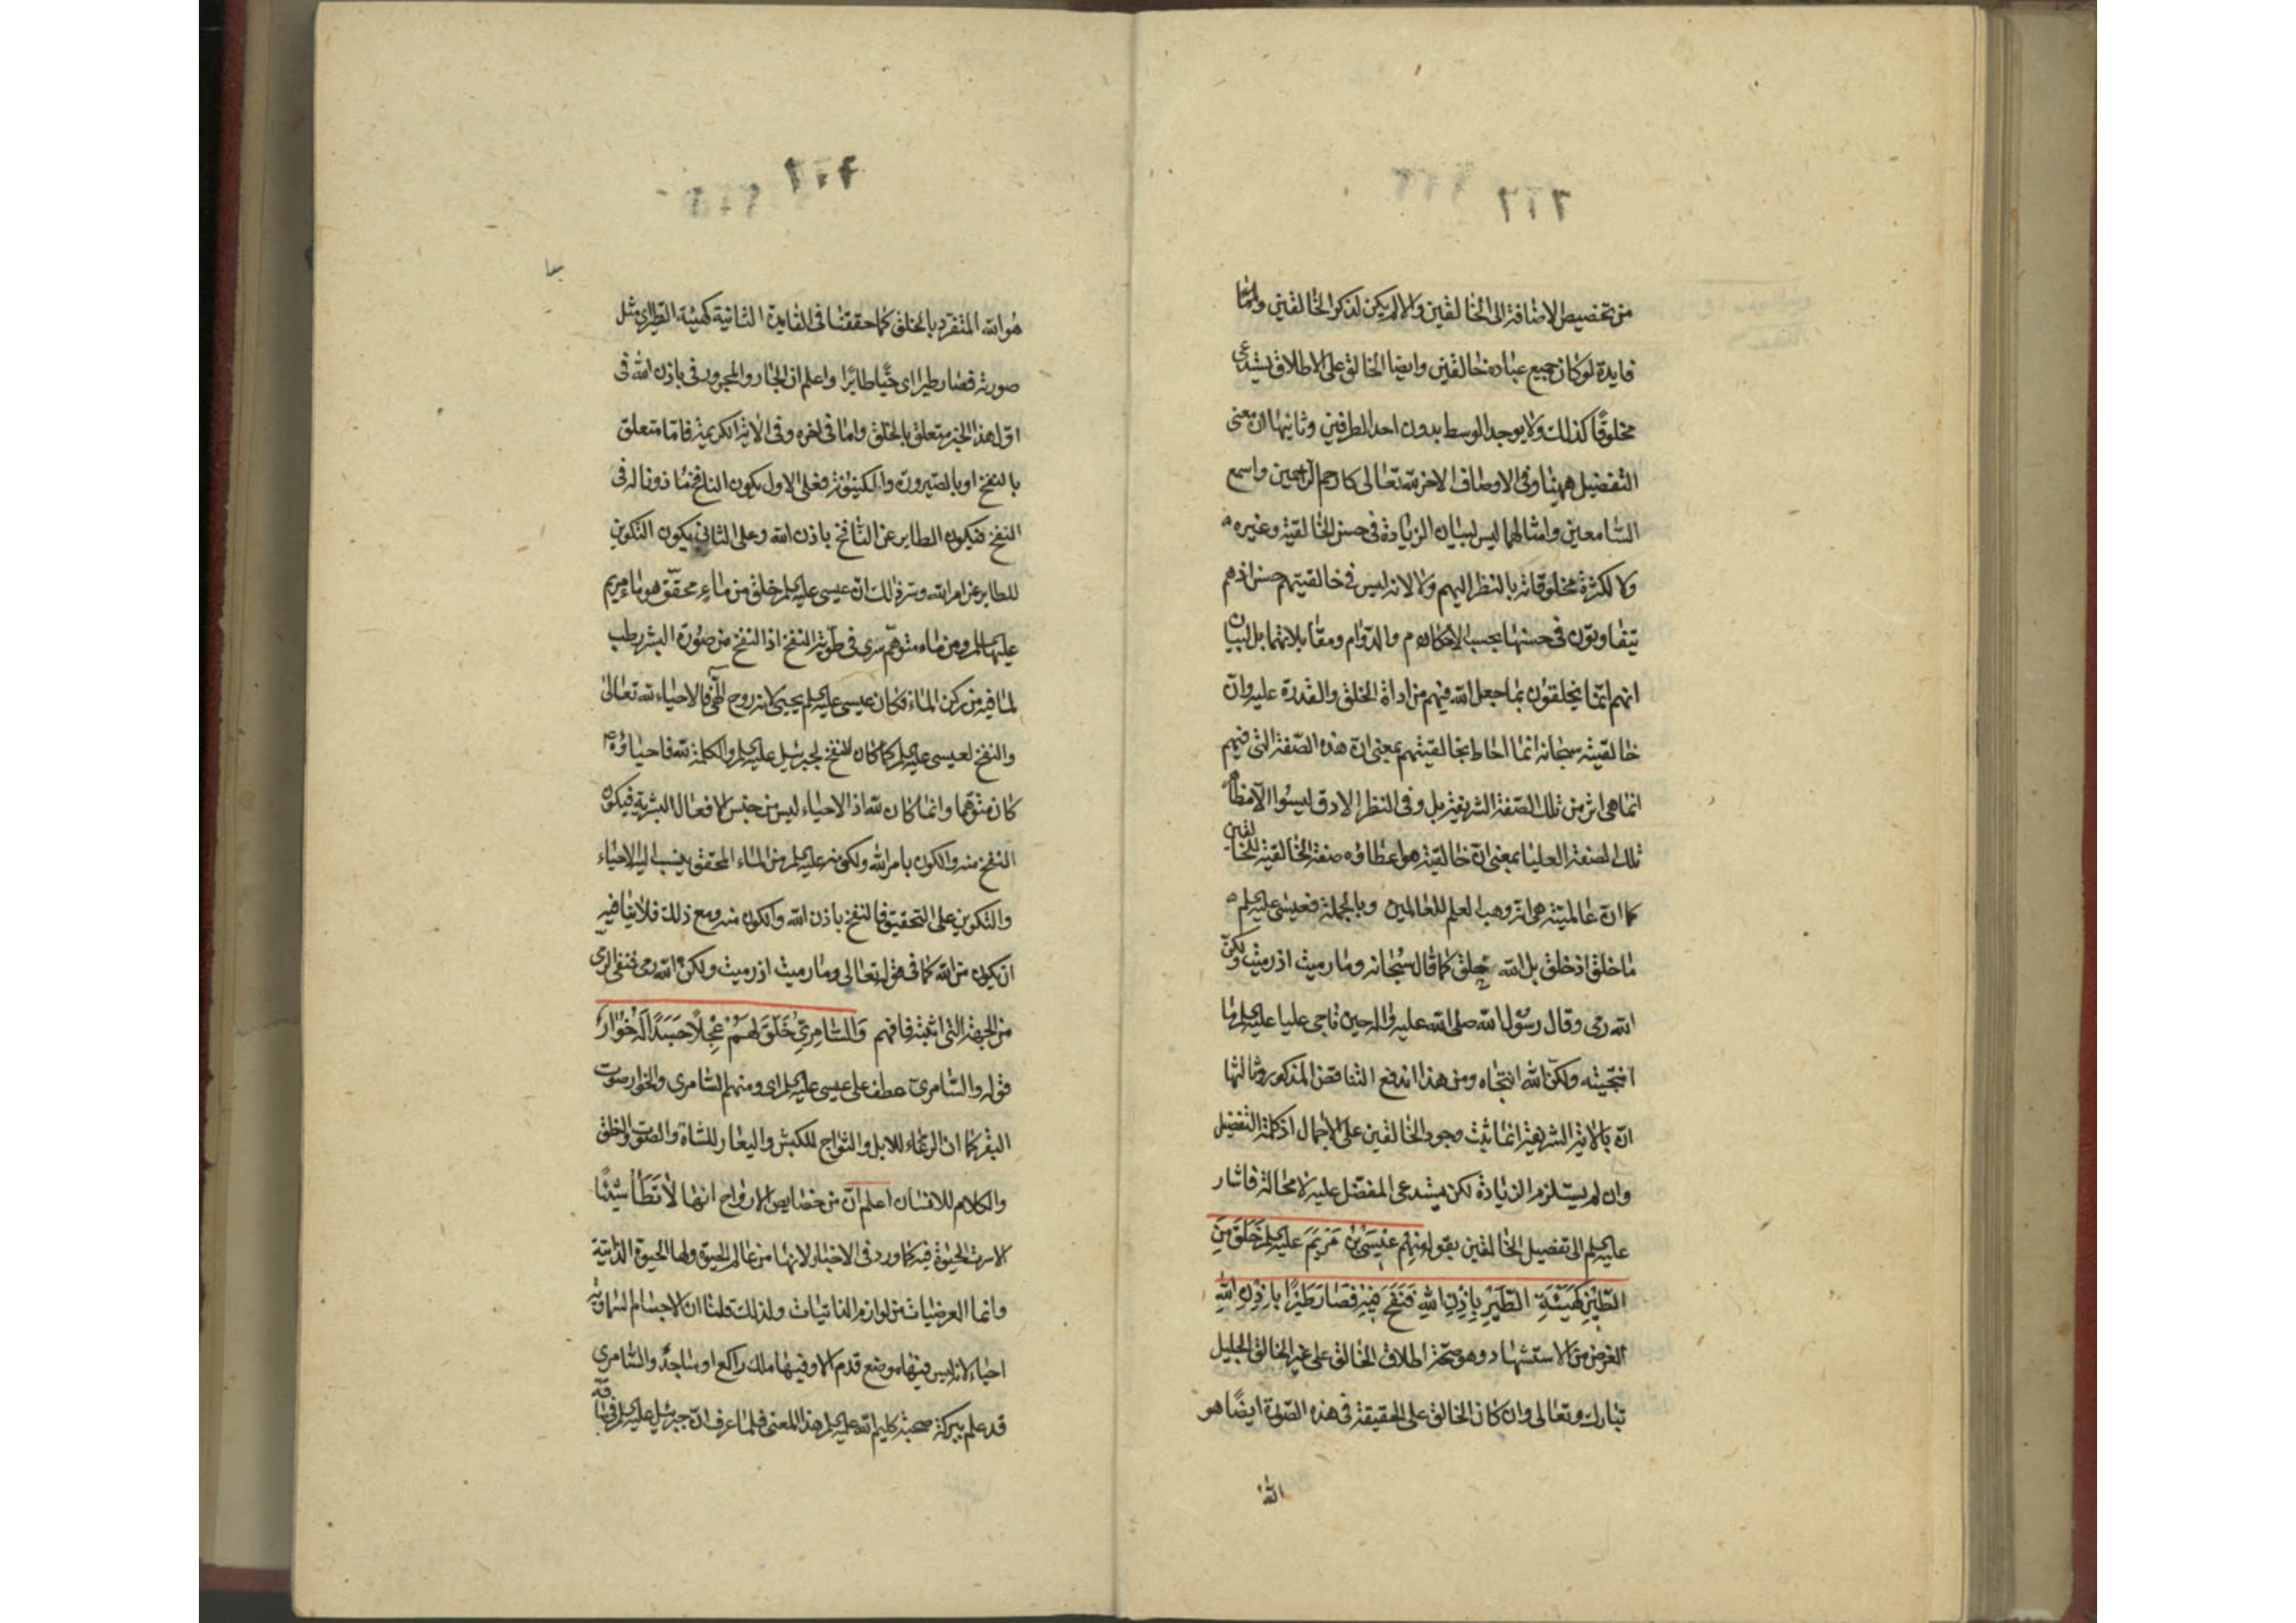 من تخصيص الاضافة الى الخالقين والا لم يكن لذكر الخالقين ولمّا
فايدة لو كان جميع عباده خالقين وايضا الخالق على الاطلاق يستدعى
مخلوقًا كذلك ولا يوجد الوسط بدون احد الطرفين وثانيها ان معنى
التفضيل ههنا وفى الاوصاف الاخر لله تعالى كارحم الراحمين واسمع
السّامعين وامثالهما ليس لبيان الزيادة فى حسن الخالقية وغيره
ولا لكثرة مخلوقاته بالنظر اليهم ولا لانه ليس فى خالقيتهم حسن اذ هم
يتفاوتون فى حسنها بحسب الاحكام والدّوام ومقابلاتهما بل لبيان
انهم انّما يخلقون بما جعل الله فيهم من اداة الخلق والقدرة عليه وانّ
خالقيته سبحانه انما احاط بخالقيتهم بمعنى انّ هذه الصّفة التى فيهم
انما هى اثر من تلك الصّفة الشريفة بل وفى النظر الادق ليسوا الّا مظاهر
تلك الصفة العليا بمعنى انّ خالقيته هو اعطاؤه صفة الخالقية للخالقين
كما انّ عالميته هى انّه وهب العلم للعالمين وبالجملة فعيسى عليه السلم
ما خلق اذ خلق بل الله خلق كما قال سبحانه وما رميت اذ رميت ولكنّ
الله رمى وقال رسول الله صلى الله عليه واله حين ناجى عليا عليه السلم ما
انتجيته ولكنّ الله انتجاه ومن هذا اندفع التناقض المذكور وثالثها
انّ بالاية الشريفة انما يثبت وجود الخالقين على الاجمال اذ كلمة التفضيل
وان لم يستلزم الزيادة لكن يستدعى المفضّل عليه لا محالة فاشار
عليه السلم الى تفضيل الخالقين بقوله منهم عِيسَى بْن مَرْيَمَ عليه السلم خَلَقَ مِنَ
الطّينِ كَهَيْئَةِ الطَّيْرِ بِاِذْنِ اللهِ فَنَفَخَ فِيهِ فَصَارَ طَيْرًا بِاِذْنِ اللهِ
الغرض من الاستشهاد وهو صحّة اطلاق الخالق على غير الخالق الجليل
تبارك وتعالى وان كان الخالق على الحقيقة فى هذه الصّورة ايضًا هو
الله
هُو الله المتفرد بالخلق كما حققنا فى الفايدة الثانية كهيئة الطّير اى مثل
صورته فصار طيرا اى حيًّا طائرًا واعلم ان الجار والمجرور فى باذن الله فى
اوّل هذا الخبر متعلق بالخلق وامّا فى اخره وفى الاية الكريمة فامّا متعلق
بالنفخ او بالصّيرورة والكينونة فعلى الاول يكون النافخ ماذونا له فى
النفخ فيكون الطاير عن النّافخ باذن الله وعلى الثانى يكون التكوين
للطاير عن امر الله وسرّ ذلك انّ عيسى عليه السلم خلق من ماء محقّق هو ماء مريم
عليها السلم ومن ماء متوهّم سرى فى طويّة النفخ اذ النفخ من صورة البشر رطب
لما فيه من ركن الماء فكان عيسى عليه السلم يحيى لانه روح الهى فالاحياء لله تعالى
والنفخ لعيسى عليه السلم كما كان النفخ لجبرئيل عليه السلم والكلمة لله فاحياؤه
كان متوهّما وانما كان لله اذ الاحياء ليس من جنس الافعال البشرية فيكون
النفخ منه والكون بامر الله ولكونه عليه السلم من الماء المحقق ينسب اليه الاحياء
والتكوين على التحقيق فالنفخ باذن الله والكون منه ومع ذلك فلا ينافيه
ان يكون من الله كما فى قوله تعالى وما رميت اذ رميت ولكنّ الله رمى فنفى الرّمى
من الجهة التى اثبته فافهم وَالسّامِرىّ خَلَقَ لهُمْ عِجْلًا جَسَدًا لَهُ خُوَارٌ
قوله والسّامرى عطف على عيسى عليه السلم اى ومنهم السّامرى والخوار صوت
البقر كما ان الرغاء للابل والثواج للكبش واليعار للشاة والصّوت والنطق
والكلام للانسان اعلم انّ من خصايص الارواح انها لا تَطَأ شيئًا
الا سرت الحيوة فيه كما ورد فى الاخبار لانها من عالم الحيوة ولها الحيوة الذاتية
وانما العرضيات من لوازم الذاتيات ولذلك قلنا ان الاجسام السّماويّة
احياء لانه ليس فيها موضع قدم الا وفيها ملك راكع او ساجد والسّامرى
قد علم ببركة صحبة كليم الله عليه السلم هذا المعنى فلما عرف انّ جبرئيل عليه السلم